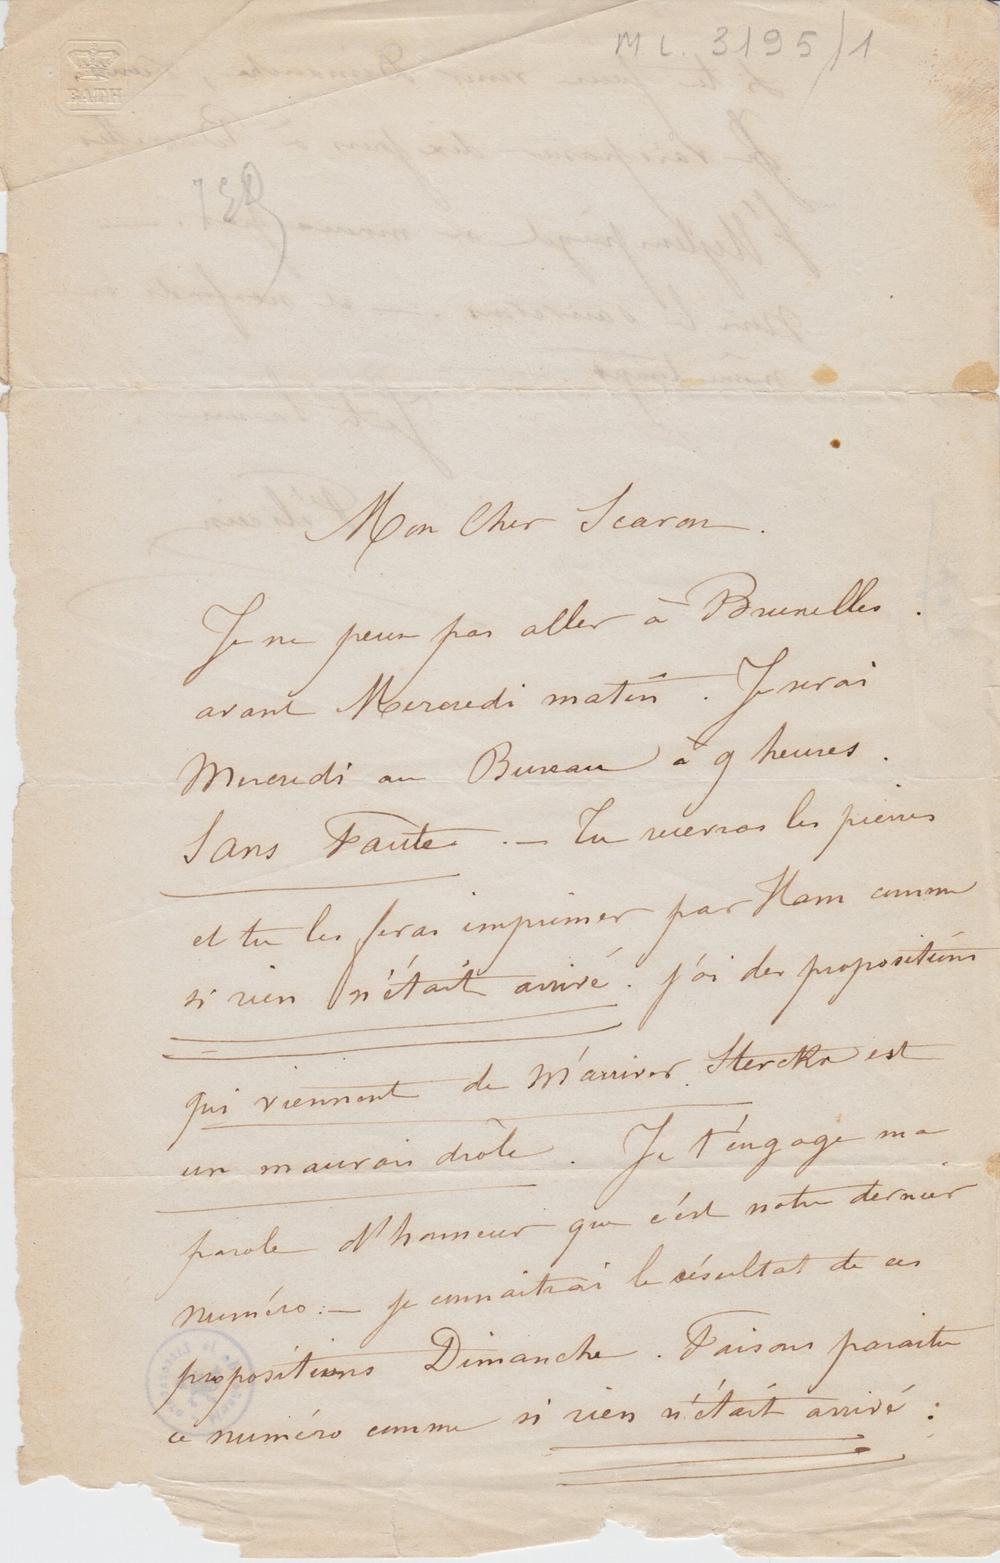 ML. 3195/1
BATH
Mon Cher Scaron.
Je ne peux pas aller à Bruxelles.
avant Mercredi matin. Je serai
Mercredi au Bureau à 9 heures.
Sans Faute. — Tu recevras les pierres
et tu les feras imprimer par Ham comme
si rien n'était arrivé. j'ai des propositions
qui viennent de M'arriver. Sterckx est
un mauvais drôle. Je t'engage ma
parole d'honneur que c'est notre dernier
numéro: — je connaitrai le résultat de ces
propositions Dimanche. Faisons paraitre
ce numéro comme si rien n'était arrivé: